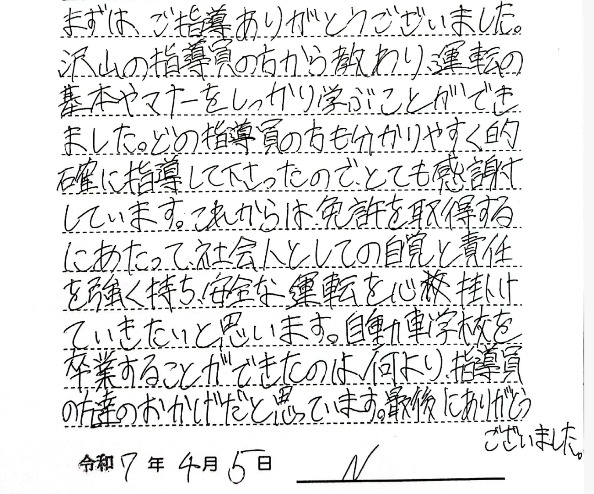 まずは、ご指導ありがとうございました。
沢山の指導員の方から教わり、運転の
基本やマナーをしっかり学ぶことができ
ました。どの指導員の方も分かりやすく的
確に指導して下さったので、とても感謝
しています。これからは、免許を取得する
にあたって、社会人としての自覚と責任
を強く持ち、安全な運転を心掛け
ていきたいと思います。自動車学校を
卒業することができたのは、何より、指導員
の方達のおかげだと思っています。最後にありがとう
ございました。
令和7年4月5日 N